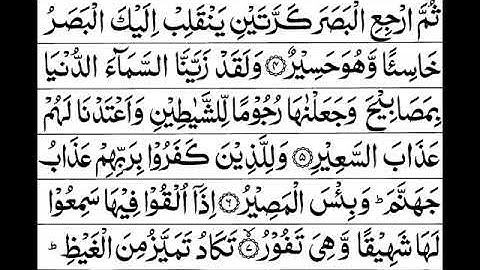 ثُمَّ ارْجِعِ الْبَصَرَ كَرَّتَيْنِ يَنْقَلِبْ اِلَيْكَ الْبَصَرُ
خَاسِئًا وَّهُوَ حَسِيْرٌ ۴ وَلَقَدْ زَيَّنَّا السَّمَآءَ الدُّنْيَا
بِمَصَابِيْحَ وَجَعَلْنٰهَا رُجُوْمًا لِّلشَّيٰطِيْنِ وَاَعْتَدْنَا لَهُمْ
عَذَابَ السَّعِيْرِ ۵ وَلِلَّذِيْنَ كَفَرُوْا بِرَبِّهِمْ عَذَابُ
جَهَنَّمَ ؕ وَبِئْسَ الْمَصِيْرُ ۶ اِذَآ اُلْقُوْا فِيْهَا سَمِعُوْا
لَهَا شَهِيْقًا وَّهِىَ تَفُوْرُ ۙ ۷ تَكَادُ تَمَيَّزُ مِنَ الْغَيْظِ ؕ